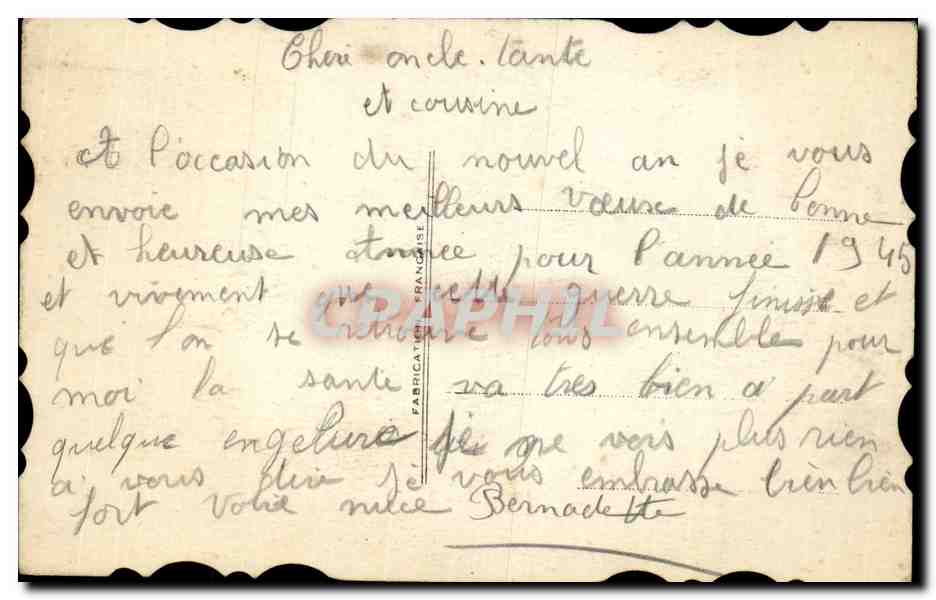 Cheri oncle. tante
et cousine
A l'occasion du nouvel an je vous
envoie mes meilleurs vœuse de bonne
et heureuse Année pour l'année 1945
et vivement que cette guerre finisse et
que l'on se retrouve tous ensemble pour
moi la santé va très bien a part
quelque engelure je ne vois plus rien
a vous dire je vous embrasse bien bien
fort votre niece Bernadette
FABRICATION FRANÇAISE
CPAPHIL